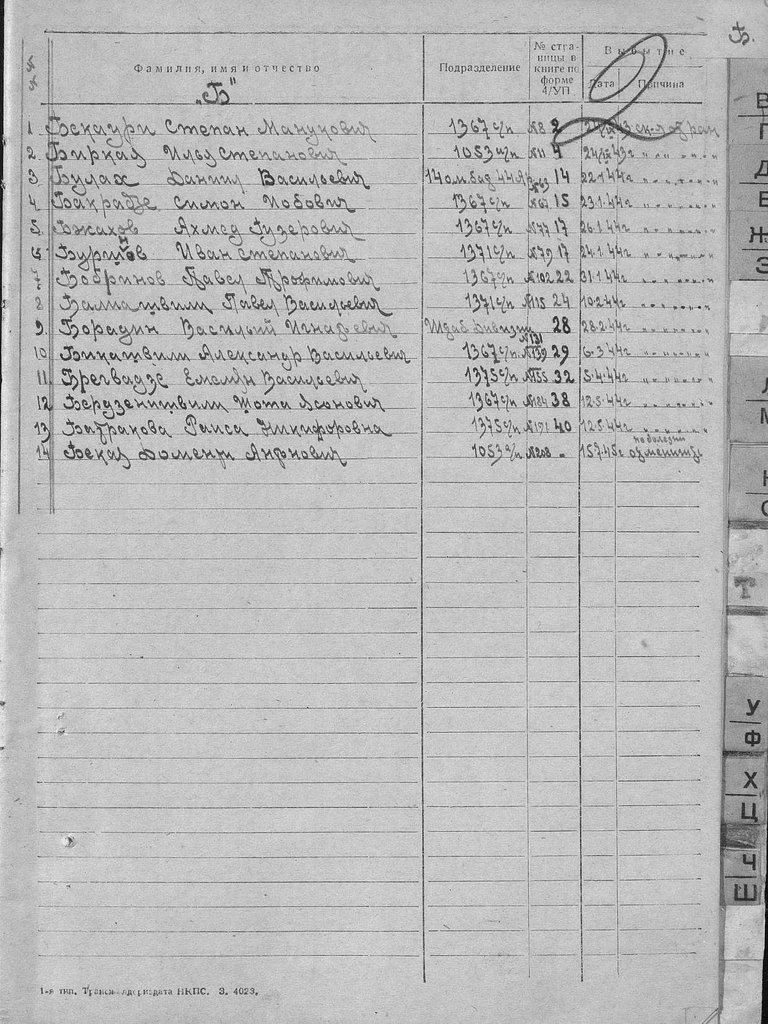 Б.
Фамилия, имя и отчество
Подразделение
№ стра-
ницы в
книге по
форме
4/УП
Выбытие
Дата
Причина
„Б"
1 Бекаури Степан Манукович 1367 с/п №8 2
2. Биркая Степанович 1053 №11 4 24/IX 43г " " " "
3 Булах Даниил Васильевич 14 22.1.44г " " " "
4. Бакрадзе Симон 1367 с/п №67 15 23.1.44г " " " "
5. Бжахов Ахмед Гузерович 1367 с/п №77 17 26.1.44г " " " "
6 Иван Степанович 1371 с/п №79 17 24.1.44г " " " "
7 Бобринов Павел Трофимович 1367 с/п №102 22 31.1.44г " " " "
8 Павел Васильевич 1371 с/п №115 24 10.2.44г " " " "
9. Борадин Василий Игнатьевич Штаб дивизии №131 28 28.2.44г " " " "
10 Бикашвили Александр Васильевич 1367 с/п №139 29 6.3.44г " " " "
11 Брегвадзе Емелян Васильевич 1375 с/п №155 32 5.4.44г " " " "
12 Бердзенишвили Шота Ясонович 1367 с/п №184 38 12.5.44г " " " "
13 Батракова Раиса Никифоровна 1375 с/п №191 40 12.5.44г " " " "
14 Бекая Доменти 1053 с/п №208 - 15.7.45г по болезни
1-я тип. Трансжелдориздата НКПС. З. 4023.
В
Г
Д
Е
Ж
З
Л
М
Н
О
Т
У
Ф
Х
Ц
Ч
Ш